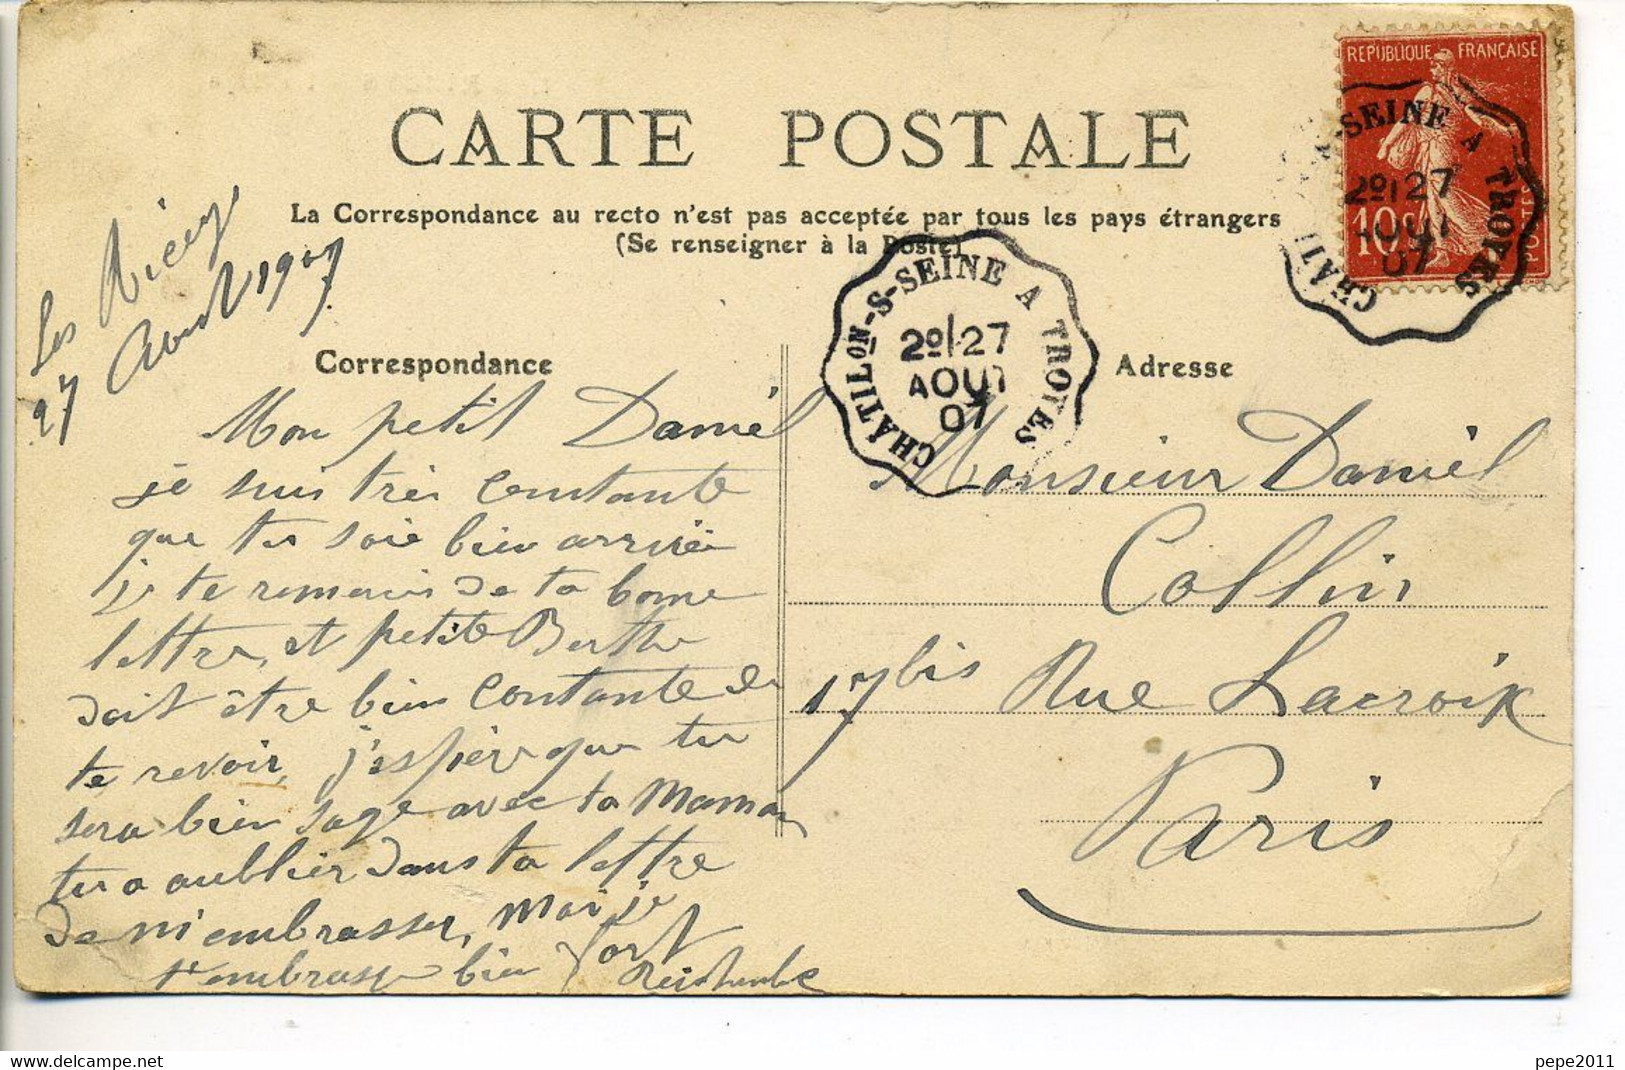 CARTE POSTALE
La Correspondance au recto n'est pas acceptée par tous les pays étrangers
(Se renseigner à la Poste)
REPUBLIQUE FRANÇAISE
10 c
POSTES
CHATILON-S-SEINE A TROYES
2º 27
AOUT
07
CHATI -SEINE A TROYES
2º 27
AOUT
07
Les Riceys
27 Août 1907
Correspondance
Mon petit Daniél
je suis très contante
que tu soie bien arrivée
je te remercis de ta bonne
lettre, et petite Berthe
doit être bien contante de
te revoir, j'espère que tu
sera bien sage avec ta Maman
tu a aublier dans ta lettre
de m'embrasser, moi je
t'embrasse bien fort
Adresse
Monsieur Daniél
Collin
17 bis Rue Lacroix
Paris
pepe2011